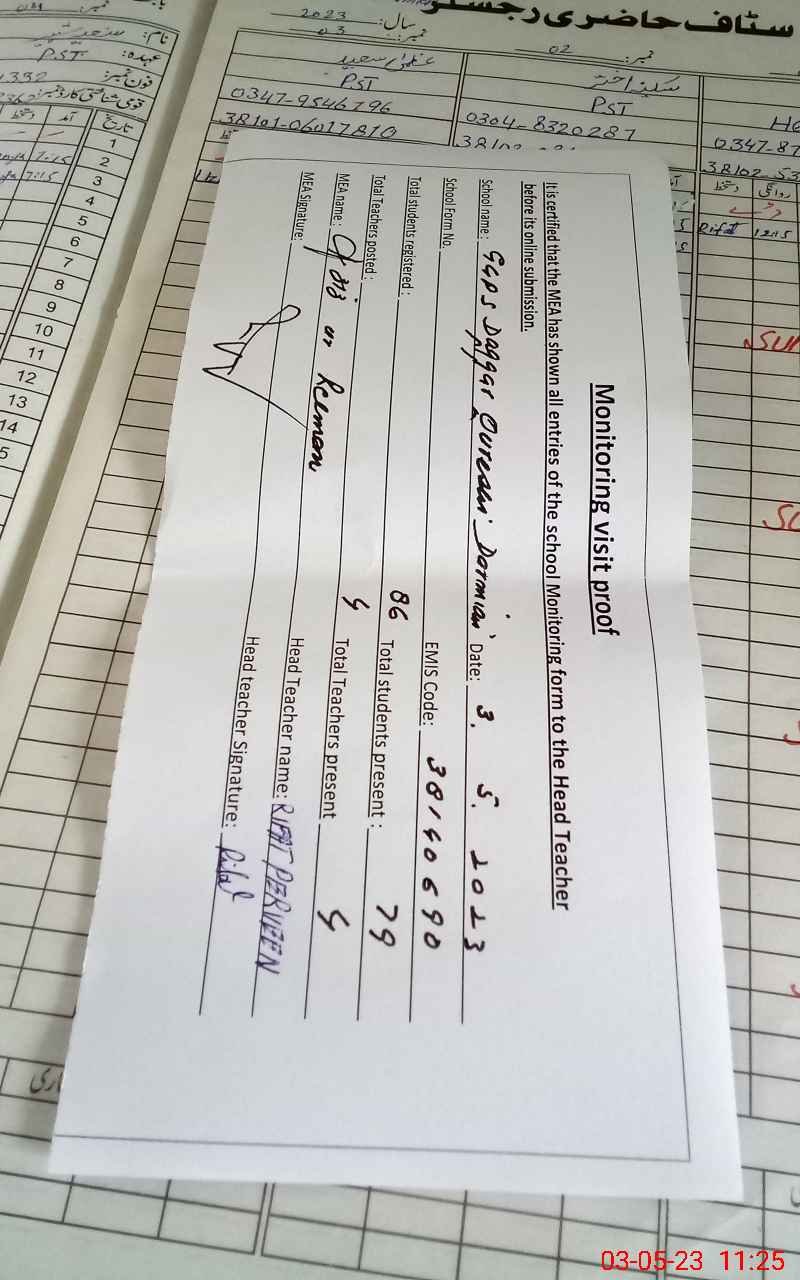 سٹاف حاضری رجسٹر
سال: 2023
نمبر: 03
نمبر: 02
عظمیٰ سعید
PST
0347-9546796
38101-06017810
سکینہ اختر
PST
0304-8320287
0347-87
38102-53
نام:
عہدہ: PST
فون نمبر:
قومی شناختی کارڈ نمبر:
تاریخ
آمد
دستخط
1
2
3
4
5
6
7
8
9
10
11
12
13
14
7:15
7:15
روانگی
دستخط
Rifat 12:15
Monitoring visit proof
It is certified that the MEA has shown all entries of the school Monitoring form to the Head Teacher
before its online submission.
School name: GGPS Daggar Qureshi Dormiani Date: 3. 5. 2023
School Form No. EMIS Code: 38140690
Total students registered: 86 Total students present: 79
Total Teachers posted: 4 Total Teachers present 4
MEA name: ur Rehman Head Teacher name: RIFAT PERVEEN
MEA Signature: Head teacher Signature: Rifat
03-05-23 11:25